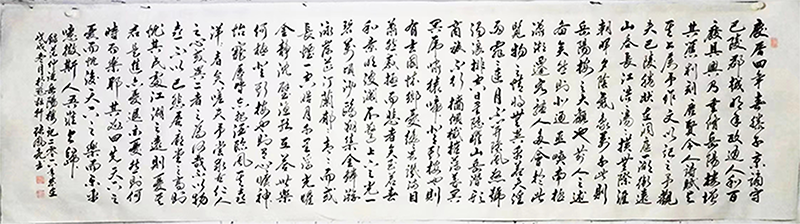 慶曆四年春滕子京謫守
巴陵郡越明年政通人和百
廢具興乃重修岳陽樓增
其舊制刻唐賢今人詩賦於
其上屬予作文以記之予觀
夫巴陵勝狀在洞庭一湖銜遠
山吞長江浩浩湯湯橫無際涯
朝暉夕陰氣象萬千此則
岳陽樓之大觀也前人之述
備矣然則北通巫峽南極
瀟湘遷客騷人多會於此
覽物之情得無異乎若夫淫
雨霏霏連月不開陰風怒號
濁浪排空日星隱曜山岳潛形
商旅不行檣傾楫摧薄暮冥
冥虎嘯猿啼登斯樓也則
有去國懷鄉憂讒畏譏滿目
蕭然感極而悲者矣至若春
和景明波瀾不驚上下天光一
碧萬頃沙鷗翔集錦鱗游
泳岸芷汀蘭郁郁青青而或
長煙一空皓月千里浮光耀
金靜影沉璧漁歌互答此樂
何極登斯樓也則有心曠神
怡寵辱偕忘把酒臨風其喜洋
洋者矣嗟夫予嘗求古仁人
之心或異二者之為何哉不以物
喜不以己悲居廟堂之高則
憂其民處江湖之遠則憂其
君是進亦憂退亦憂然則何
時而樂耶其必曰先天下之
憂而憂後天下之樂而樂乎
噫微斯人吾誰與歸
錄范仲淹岳陽樓記二〇一八年
戊戌年